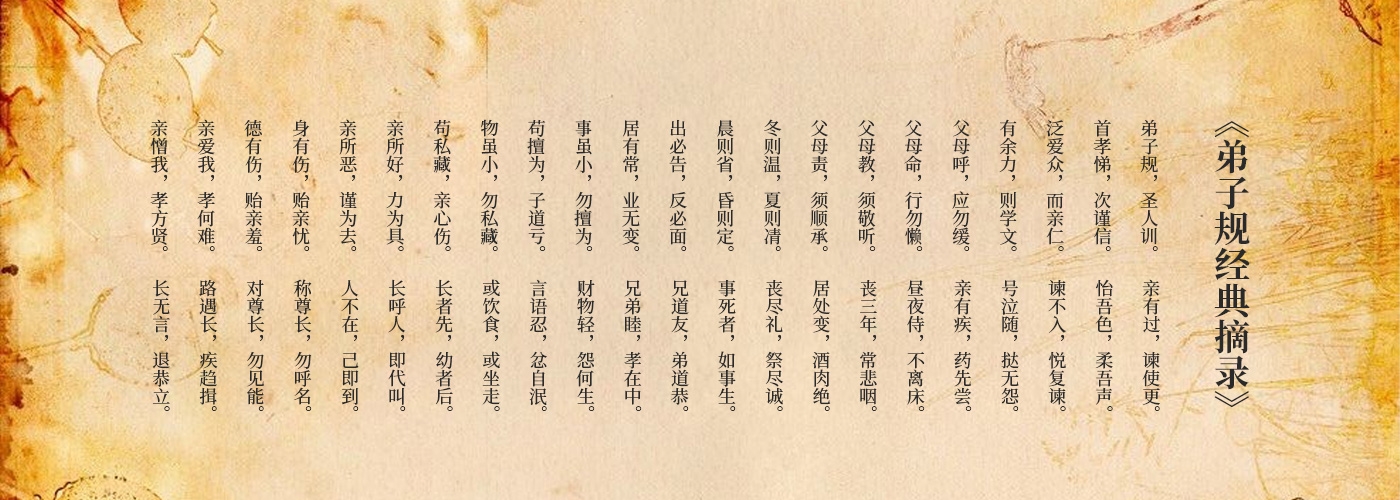 《弟子规经典摘录》
弟子规，圣人训。
首孝悌，次谨信。
泛爱众，而亲仁。
有余力，则学文。
父母呼，应勿缓。
父母命，行勿懒。
父母教，须敬听。
父母责，须顺承。
冬则温，夏则凊。
晨则省，昏则定。
出必告，反必面。
居有常，业无变。
事虽小，勿擅为。
苟擅为，子道亏。
物虽小，勿私藏。
苟私藏，亲心伤。
亲所好，力为具。
亲所恶，谨为去。
身有伤，贻亲忧。
德有伤，贻亲羞。
亲爱我，孝何难。
亲憎我，孝方贤。
亲有过，谏使更。
怡吾色，柔吾声。
谏不入，悦复谏。
号泣随，挞无怨。
亲有疾，药先尝。
昼夜侍，不离床。
丧三年，常悲咽。
居处变，酒肉绝。
丧尽礼，祭尽诚。
事死者，如事生。
兄道友，弟道恭。
兄弟睦，孝在中。
财物轻，怨何生。
言语忍，忿自泯。
或饮食，或坐走。
长者先，幼者后。
长呼人，即代叫。
人不在，己即到。
称尊长，勿呼名。
对尊长，勿见能。
路遇长，疾趋揖。
长无言，退恭立。